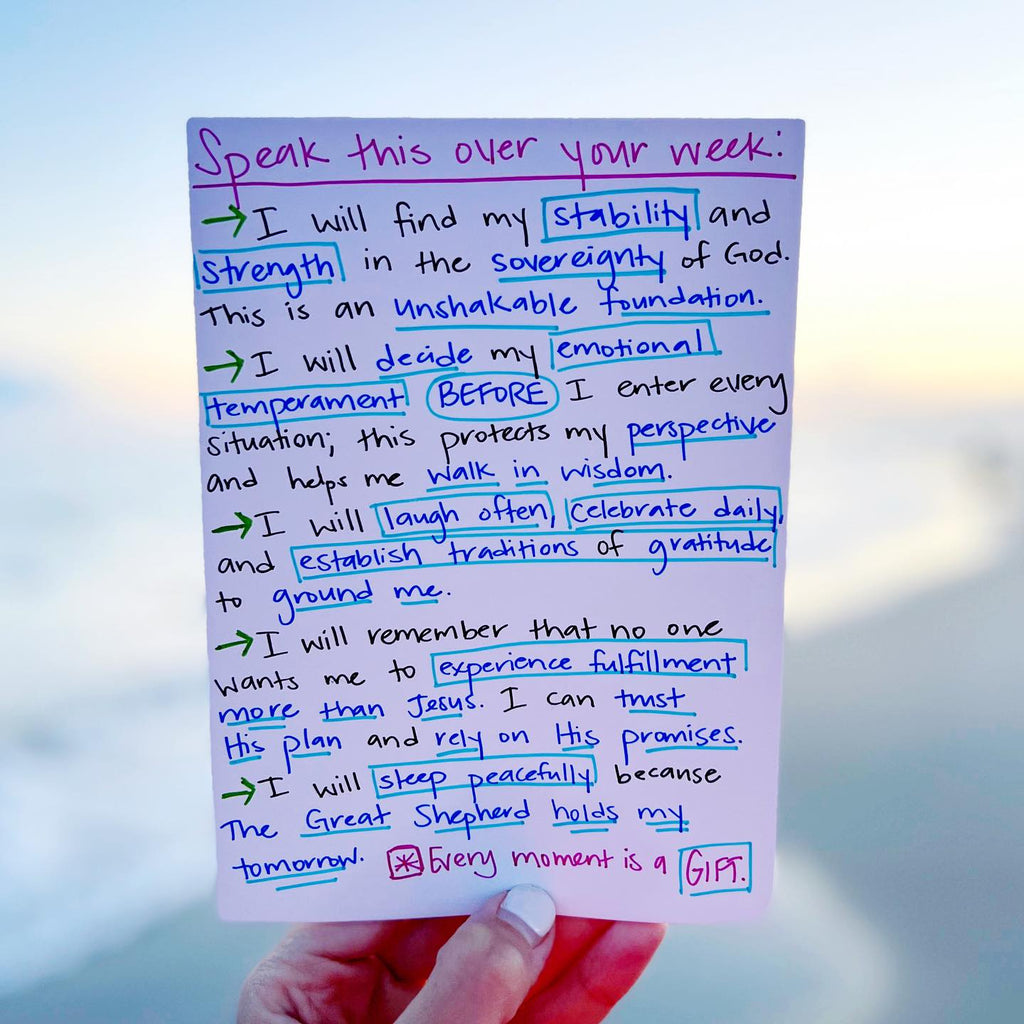 Speak this over your week:
→ I will find my stability and
strength in the sovereignty of God.
This is an unshakable foundation.
→ I will decide my emotional
temperament BEFORE I enter every
situation; this protects my perspective
and helps me walk in wisdom.
→ I will laugh often, celebrate daily,
and establish traditions of gratitude
to ground me.
→ I will remember that no one
wants me to experience fulfillment
more than Jesus. I can trust
His plan and rely on His promises.
→ I will sleep peacefully because
The Great Shepherd holds my
tomorrow. * Every moment is a GIFT.